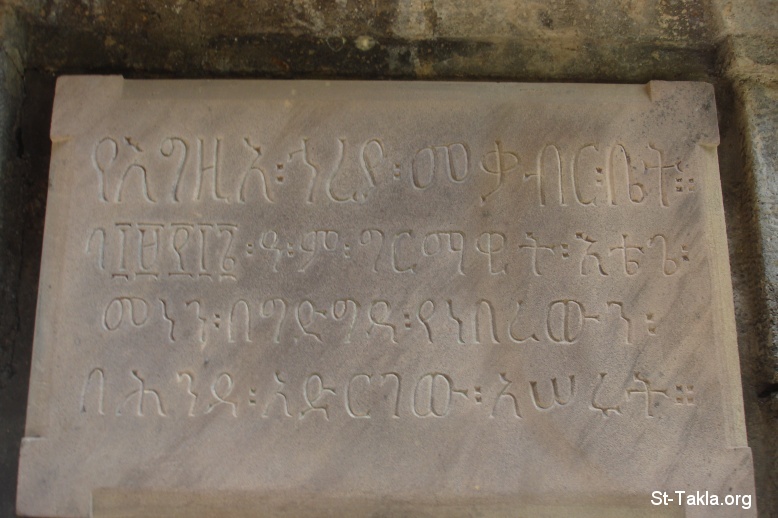 የእግዚእ፡ኅረያ፡መቃብር፡ቤት፡፡
በ፲፱፻፲፮፡ዓ፡ም፡ግርማዊት፡እቴጌ፡
መነን፡በግድግዳ፡የነበረውን፡
በሕንዳ፡አድርገው፡አሠሩት፡፡
St-Takla.org